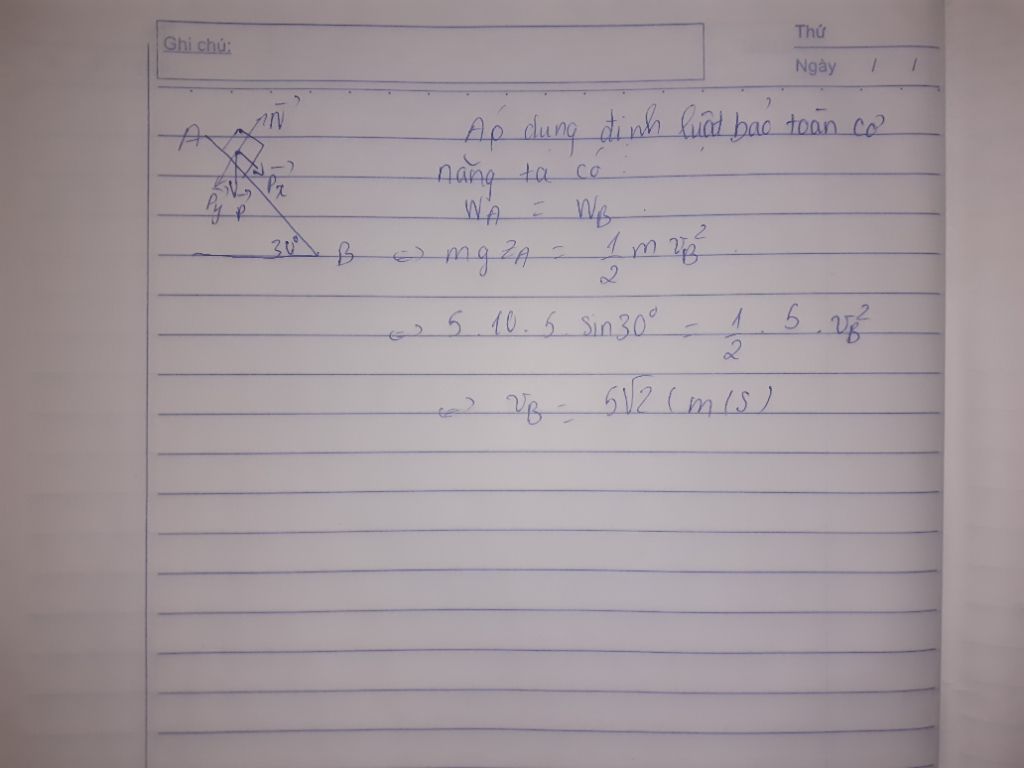 Ghi chú:
Thứ
Ngày / /
A
N
Px
Py P
30° B
Áp dụng định luật bảo toàn cơ
năng ta có :
WA = WB .
<=> mgzA = 1/2 m vB² .
<=> 5 . 10 . 5 . sin30° = 1/2 . 5 . vB²
<=> vB = 5√2 (m/s)